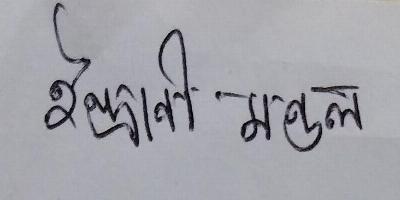 ইন্দ্রানী মণ্ডল